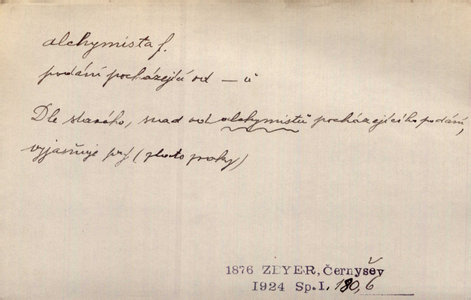 alchymista f.
podání pocházející od – ů
Dle starého, snad od alchymistů pocházejícího podání,
vyjasňuje prý (zlato zraky)
1876 ZEYER, Černyšev
1924 Sp.I. 180,6